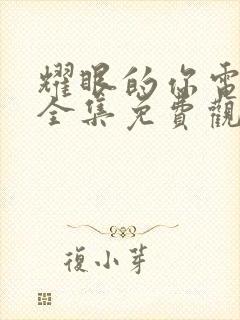 耀眼的你電
全集免費觀
復小芽